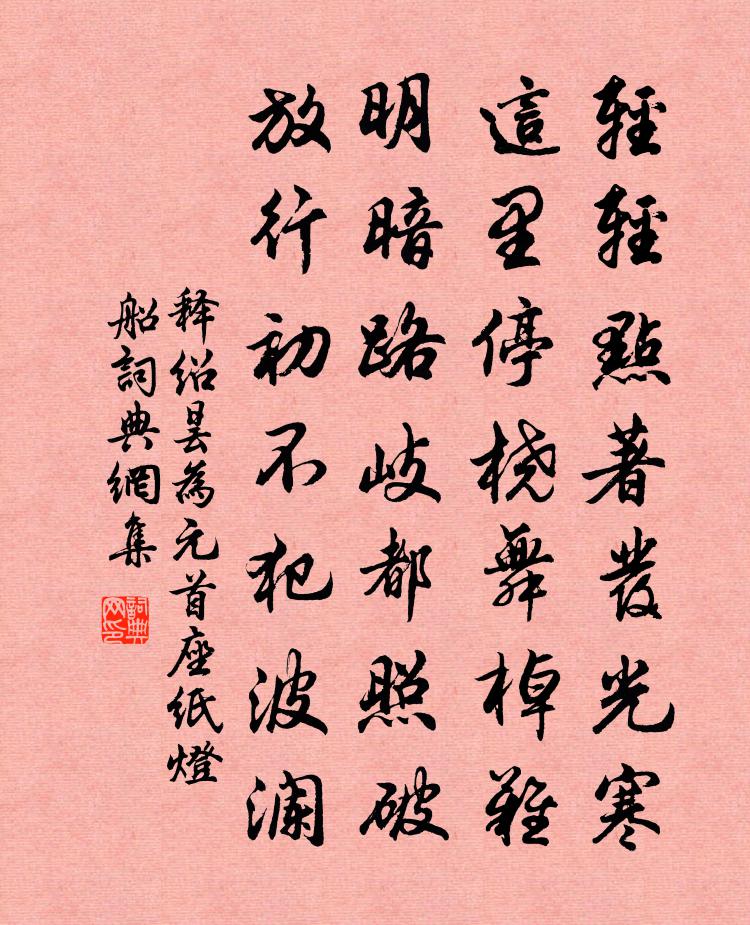 輕輕點著發光寒
這里停桡舞棹難
明暗路歧都照破
放行初不犯波澜
释绍昙為元首座紙燈
船詞典網集
詞典网印